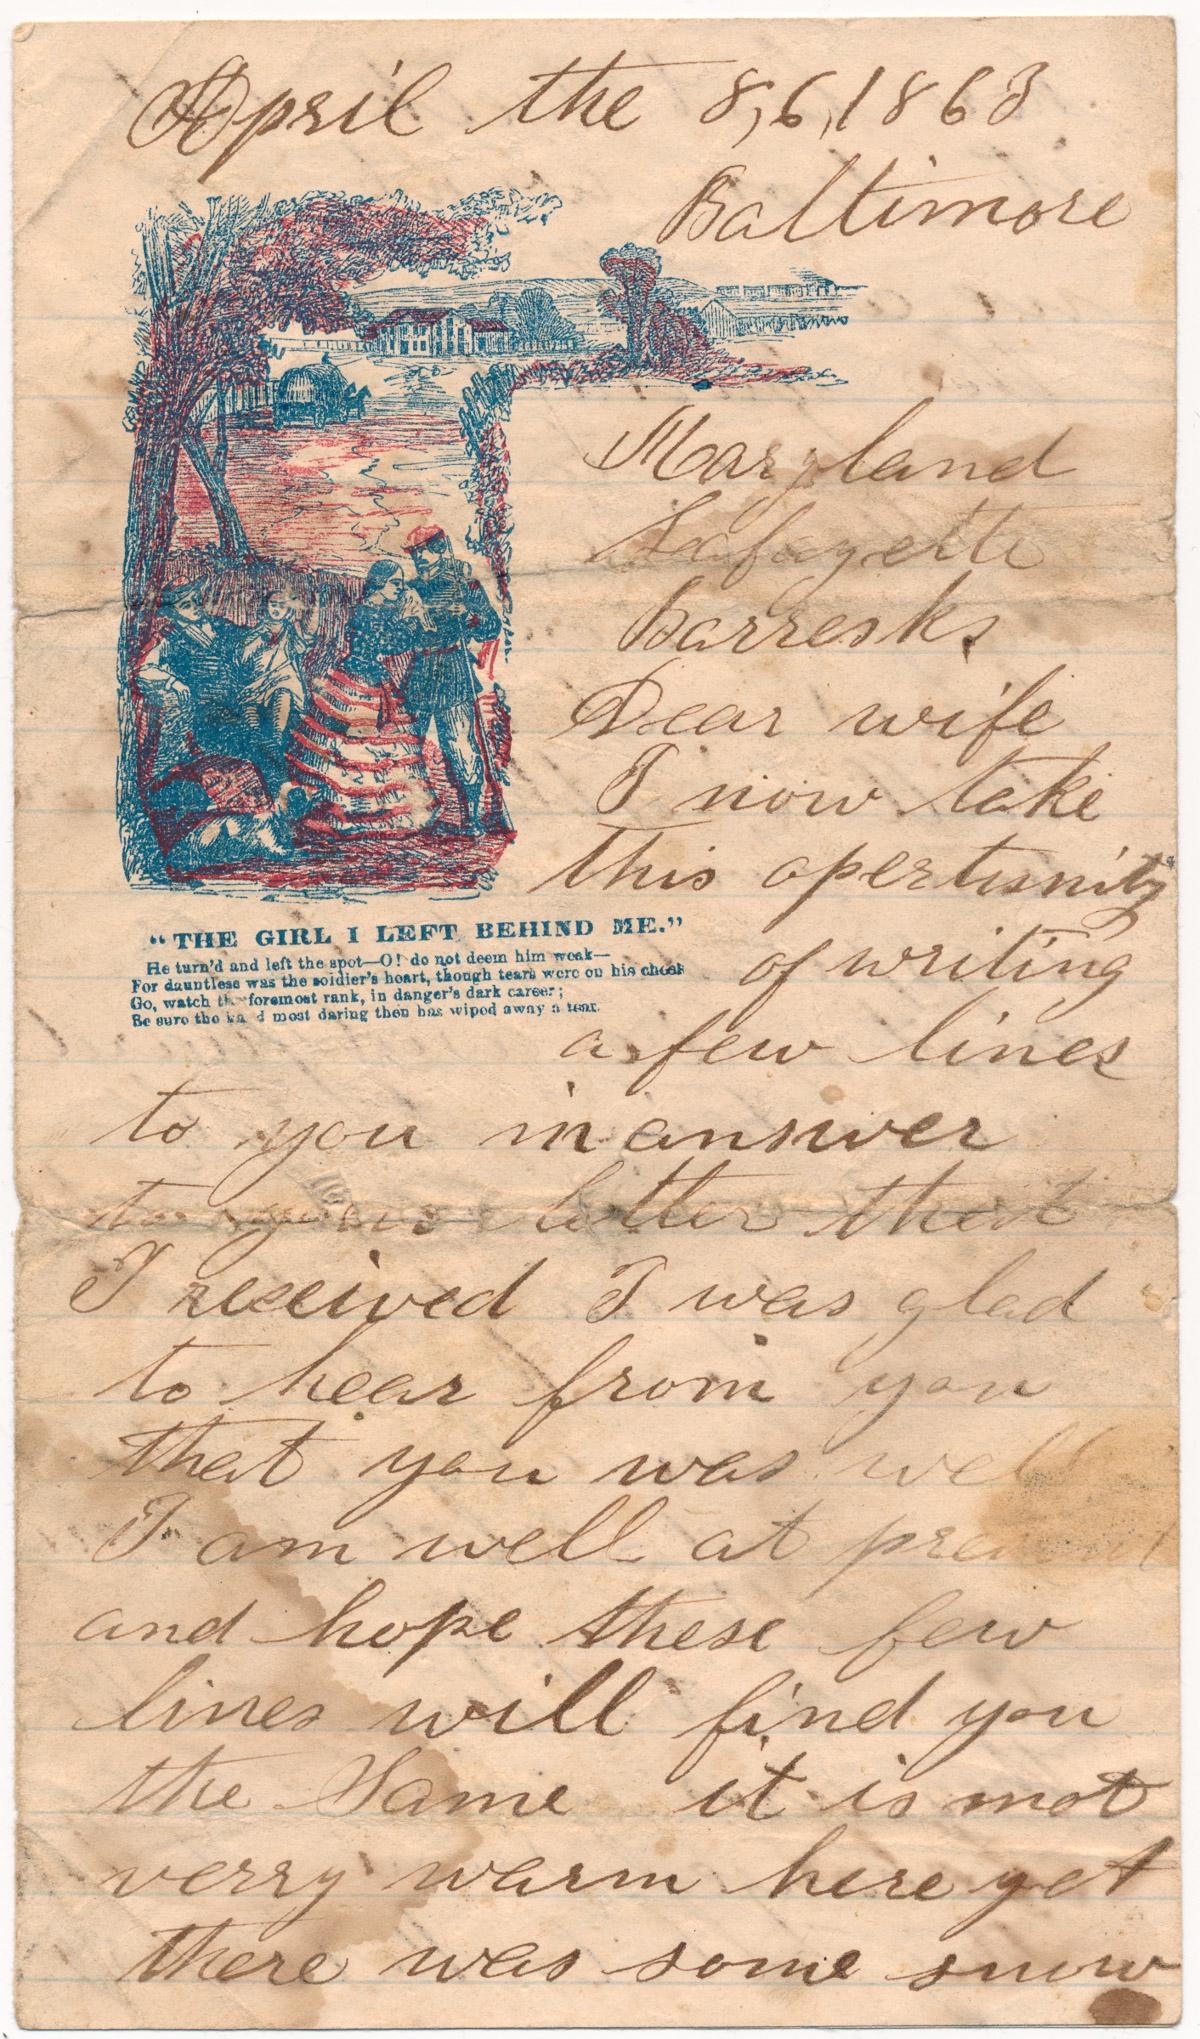 April the 8,6,1863
Baltimore
Maryland
Lafayette
Barresks
Dear wife
I now take
this opertunity
of writing
a few lines
"THE GIRL I LEFT BEHIND ME."
He turn'd and left the spot—O! do not deem him weak—
For dauntless was the soldier's heart, though tears were on his cheek
Go, watch the foremost rank, in danger's dark career;
Be sure the hand most daring then has wiped away a tear.
to you in answer
to your letter that
I received I was glad
to hear from you
that you was well
I am well at present
and hope these few
lines will find you
the Same it is not
verry warm here yet
there was some snow